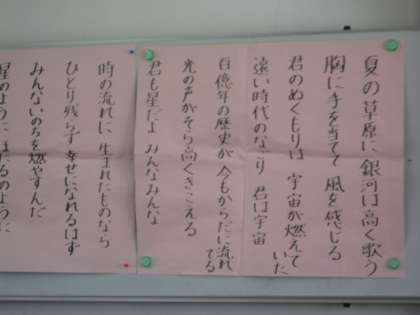 夏の草原に 銀河は高く歌う
胸に手を当てて 風を感じる
君のぬくもりは 宇宙が燃えて
いた
遠い時代のなごり 君は宇宙
百億年の歴史が 今もからだに流れ
てる
光の声がそら高くきこえる
君も星だよ みんなみんな
時の流れに 生まれたものなら
ひとり残らず 幸せになれるはず
みんないのちを燃やすんだ
星のように ほたるのように